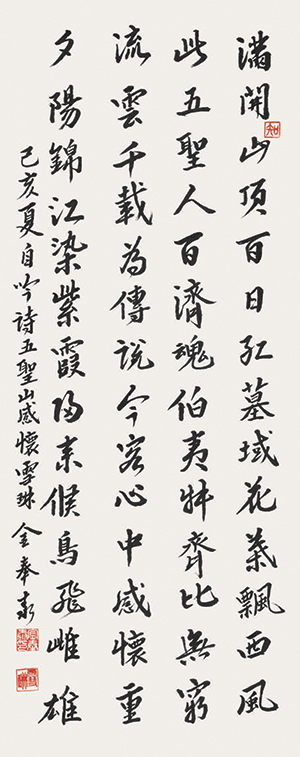 滿開山頂百日紅墓域花葉飄西風
此五聖人百濟魂伯夷叔齊比無窮
流雲千載為傳說今客心中感懷重
夕陽錦江染紫霞歸來候鳥飛雌雄
己亥夏自吟詩五聖山感懷雪琳金奉
知